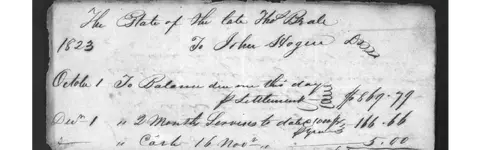 The Estate of the late Thos Beale
1823 To John Hogan Dr
Octobr 1 To Balance due me this day
pr Settlement $869.79
Decr 1 " 2 Month Services to date 166.66
" Cash 16 Novr " 5.00